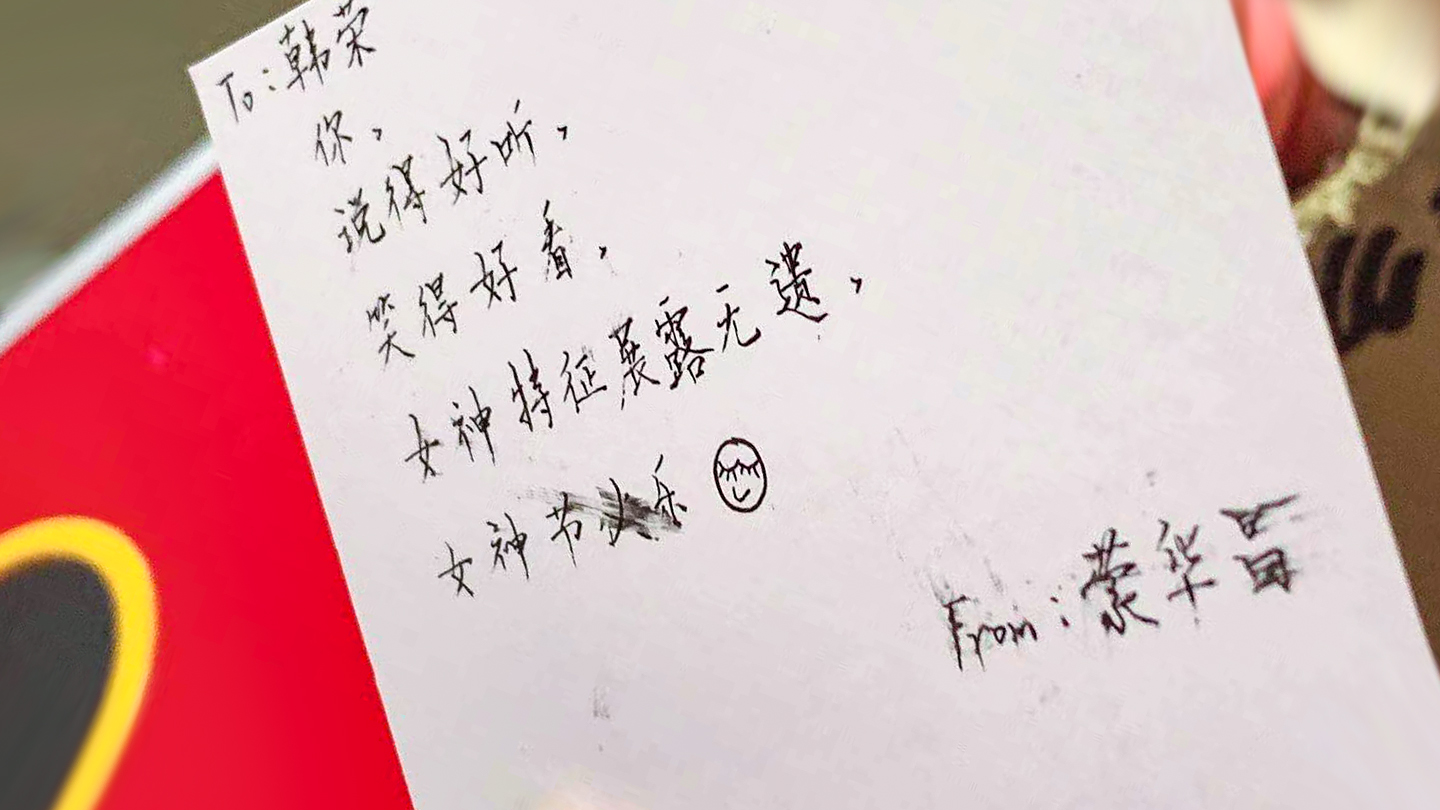 To:韩荣
你,
说得好听,
笑得好看,
女神特征展露无遗,
女神节快乐
From:蒙华